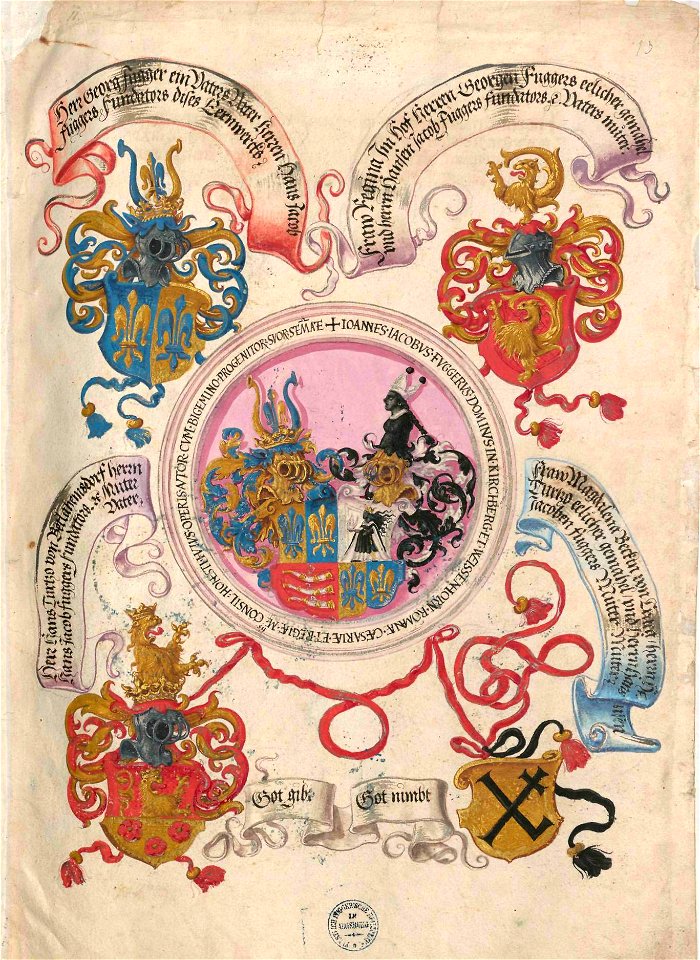 Herr Georg Fugger ein Vaters Vatter Herren Hans Jacob
Fuggers Fundators dises Eernwercks
Fraw Regina Im Hof Herren Georgen Fuggers eelicher gemahel
vnd herrn Hansen Jacob Fuggers fundators, ꝛc. Vaters můter.
✝ IOANNES · IACOBVS · FVGGERVS · DOMINVS · IN · KIRCHBERG · ET · WEISSENHORN · ROMAÆ · CÆSARIÆ · ET · REGIÆ · CONSIL · HVIVS · OPERIS · AVTOR · CVM · BIGEMINO · PROGENITOR · SVOR · STEMATE
Herr Hans Turtzo von Bethlahemsdorf herrn
Hans Jacob fuggers fundators, ꝛc Muter
Vater,
Fraw Magdalena Beckin von
Turtzo eelicher gemahel vnd herrn Hans
Jacoben Fuggers Muter Muter
Got gibt
Got nimbt
13